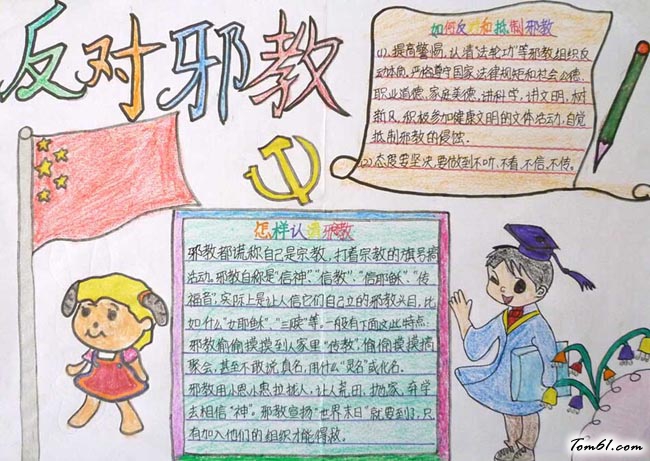 反对邪教
如何反对和抵制邪教
(1)、提高警惕,认清“法轮功”等邪教组织反
动本质,严格遵守国家法律规矩和社会公德、
职业道德、家庭美德,讲科学,讲文明,树
新风,积极参加健康文明的文体活动,自觉
抵制邪教的侵蚀.
(2)、态度要坚决,要做到不听、不看、不信、不传。
怎样认清邪教
邪教都谎称自己是宗教,打着宗教的旗号搞
活动。邪教自称是“信神”“信教”“信耶稣”“传
福音”,实际上是让人信它们自己立的邪教头目,比
如什么“女耶稣”、“三赎”等,一般有下面这些特点:
邪教都偷摸摸到人家里“传教”,偷偷摸摸搞
聚会,甚至不敢说真名,用什么“灵名”或化名。
邪教用小恩小惠拉拢人,让人荒田、抛家、弃学
去相信“神”。邪教宣扬“世界末日”就要到了,只
有加入他们的组织才能得救。
Tom61.com